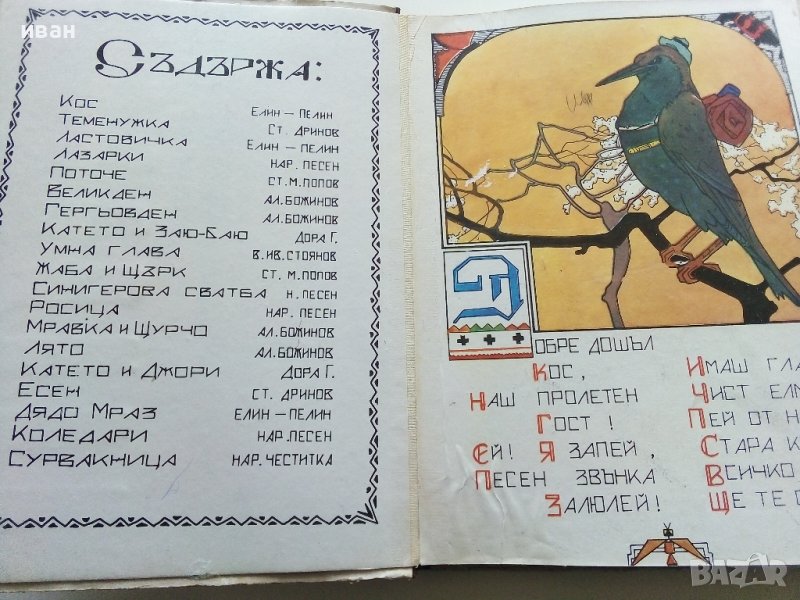 иван
Съдържа:
Кос Елин – Пелин
Теменужка Ст. Дринов
Ластовичка Елин – Пелин
Лазарки нар. песен
Поточе ст. м. попов
Великден ал. божинов
Гергьовден ал. божинов
Катето и Заю-Баю Дора Г.
Умна глава в. ив. стоянов
Жаба и щърк ст. м. попов
Синигерова сватба н. песен
Росица нар. песен
Мравка и Щурчо ал. божинов
Лято ал. божинов
Катето и Джори Дора Г.
Есен ст. Дринов
Дядо Мраз Елин – Пелин
Коледари нар. песен
Сурвакница нар. честитка
Добре дошъл
Кос,
Наш пролетен
гост!
Ей! Я запей,
Песен звънка
залюлей!
Имаш
Чист
Пей от
Стара
Всичко
Ще те
BAZAR